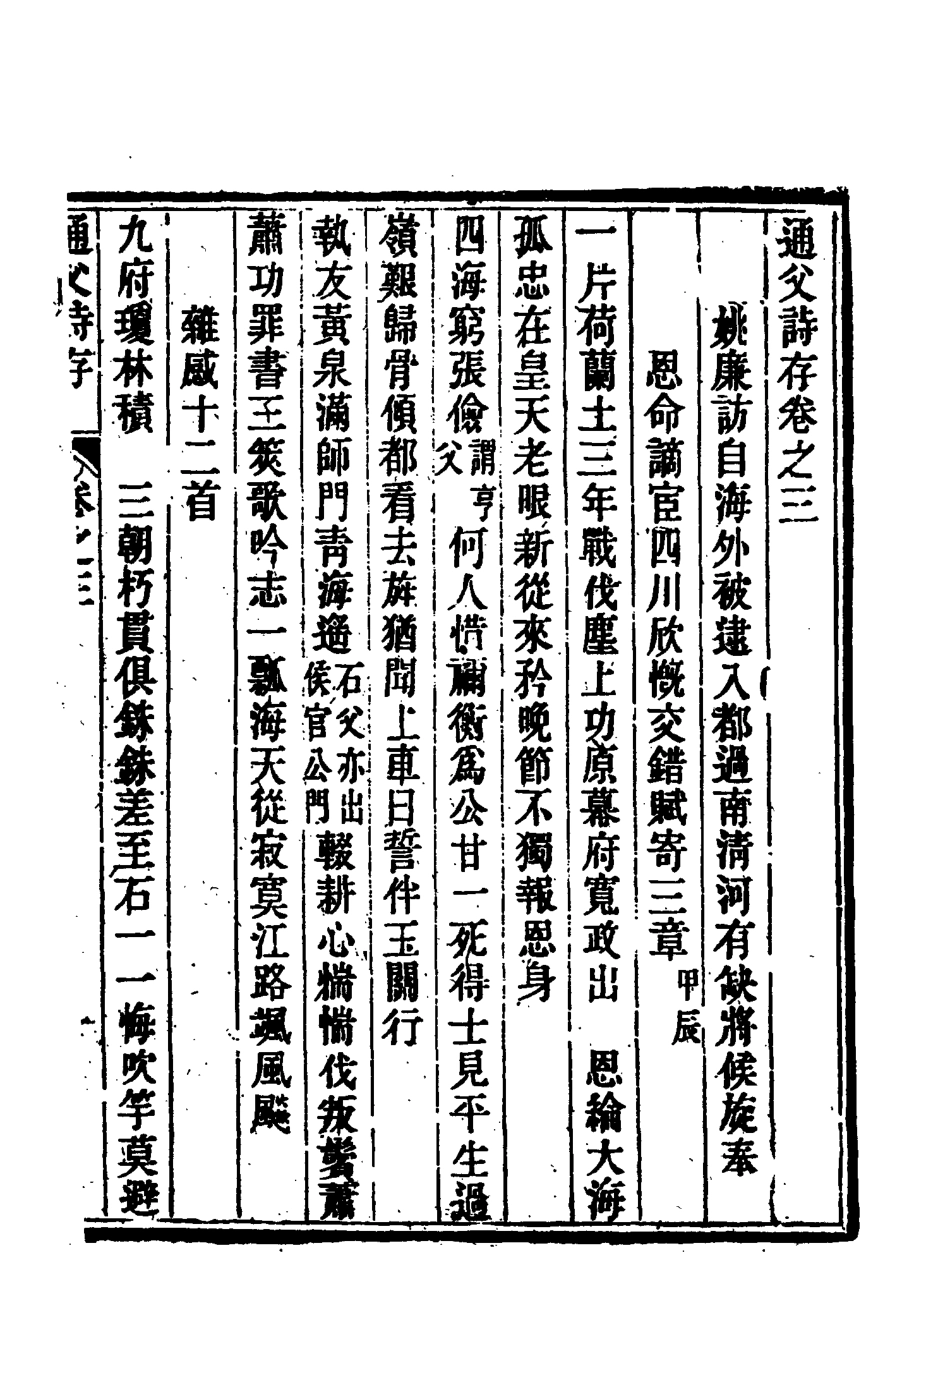 通父詩存卷之三
姚廉訪自海外被逮入都過南清河有缺將候旋奉
恩命謫宦四川欣慨交錯賦寄三章甲辰
一片荷蘭土三年戰伐塵上功原幕府寬政出　恩綸大海
孤忠在皇天老眼新從來矜晚節不獨報恩身
四海窮張儉謂亨父何人惜禰衡爲公甘一死得士見平生過
嶺艱歸骨傾都看去旌猶聞上車日誓伴玉關行
執友黃泉滿師門青海遙石父亦出侯官公門輟耕心惴惴伐叛鬢蕭
蕭功罪書三篋歌吟志一瓢海天從寂寞江路颯風飈
雜感十二首
九府瓊林積　三朝朽貫俱銖銖差至石一一悔吹竽莫避
通父詩存
卷之三